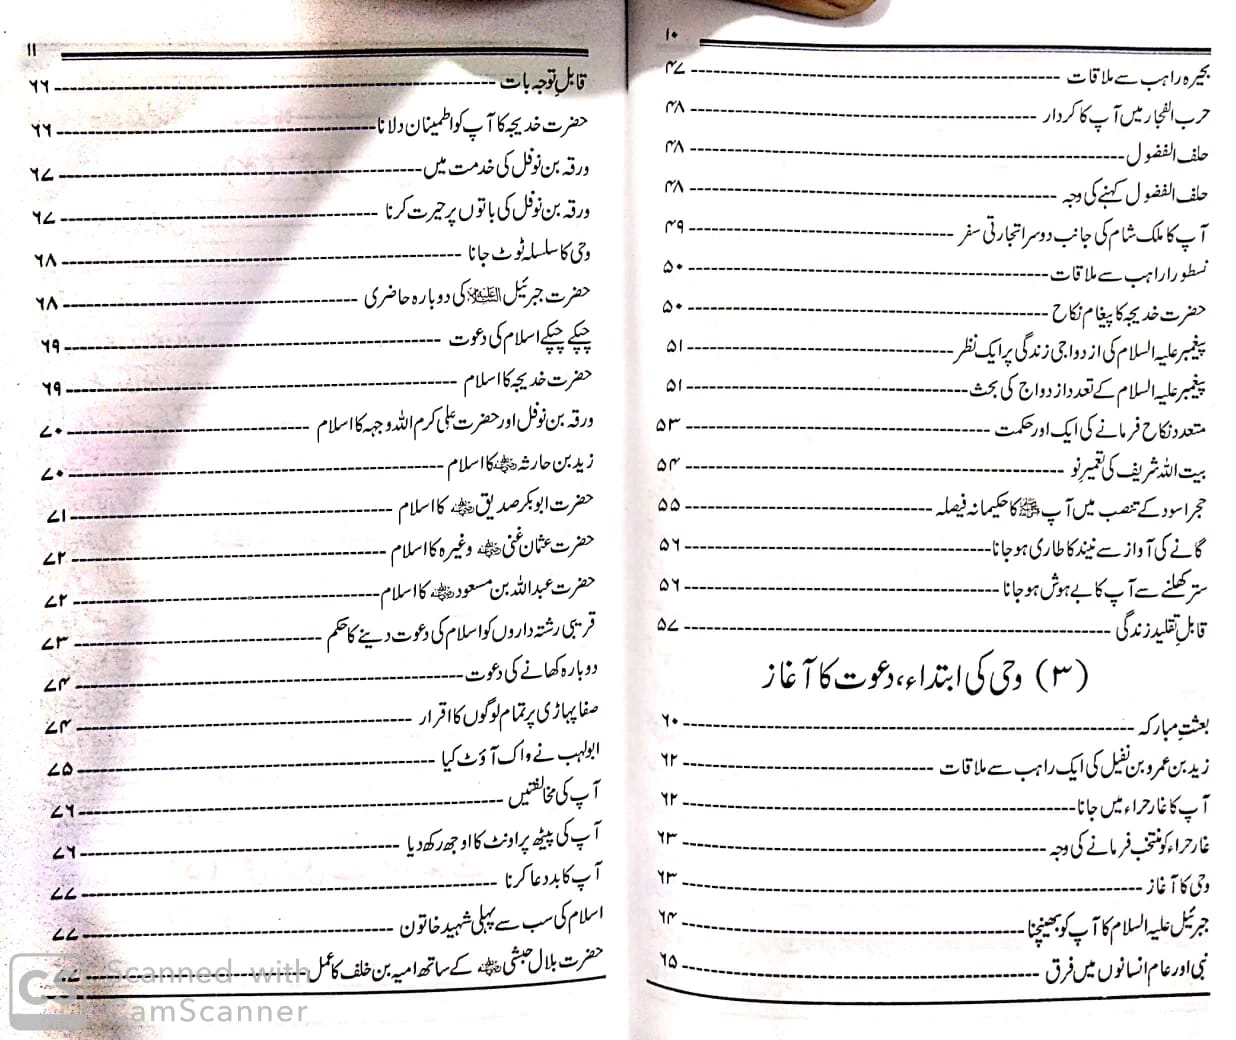 ۱۰
بحیرہ راہب سے ملاقات ---------- ۴۷
حرب الفجار میں آپ کا کردار ---------- ۴۸
حلف الفضول ---------- ۴۸
حلف الفضول کہنے کی وجہ ---------- ۴۸
آپ کا ملک شام کی جانب دوسرا تجارتی سفر ---------- ۴۹
نسطورا راہب سے ملاقات ---------- ۵۰
حضرت خدیجہ کا پیغام نکاح ---------- ۵۰
پیغمبر علیہ السلام کی ازدواجی زندگی پر ایک نظر ---------- ۵۱
پیغمبر علیہ السلام کے تعدد ازدواج کی بحث ---------- ۵۱
متعدد نکاح فرمانے کی ایک اور حکمت ---------- ۵۳
بیت اللہ شریف کی تعمیرِ نو ---------- ۵۴
حجر اسود کے تنصب میں آپ ﷺ کا حکیمانہ فیصلہ ---------- ۵۵
گانے کی آواز سے نیند کا طاری ہو جانا ---------- ۵۶
ستر کھلنے سے آپ کا بے ہوش ہو جانا ---------- ۵۶
قابلِ تقلید زندگی ---------- ۵۷
(۳) وحی کی ابتداء، دعوت کا آغاز
بعثتِ مبارکہ ---------- ۶۰
زید بن عمرو بن نفیل کی ایک راہب سے ملاقات ---------- ۶۲
آپ کا غار حراء میں جانا ---------- ۶۲
غار حراء کو منتخب فرمانے کی وجہ ---------- ۶۳
وحی کا آغاز ---------- ۶۳
جبرئیل علیہ السلام کا آپ کو بھینچنا ---------- ۶۴
نبی اور عام انسانوں میں فرق ---------- ۶۵
۱۱
قابلِ توجہ بات ---------- ۶۶
حضرت خدیجہ کا آپ کو اطمینان دلانا ---------- ۶۶
ورقہ بن نوفل کی خدمت میں ---------- ۶۷
ورقہ بن نوفل کی باتوں پر حیرت کرنا ---------- ۶۷
وحی کا سلسلہ ٹوٹ جانا ---------- ۶۸
حضرت جبرئیل علیہ السلام کی دوبارہ حاضری ---------- ۶۸
چپکے چپکے اسلام کی دعوت ---------- ۶۹
حضرت خدیجہ کا اسلام ---------- ۶۹
ورقہ بن نوفل اور حضرت علی کرم اللہ وجہہ کا اسلام ---------- ۷۰
زید بن حارثہ رضی اللہ عنہ کا اسلام ---------- ۷۰
حضرت ابوبکر صدیق رضی اللہ عنہ کا اسلام ---------- ۷۱
حضرت عثمان غنی رضی اللہ عنہ وغیرہ کا اسلام ---------- ۷۲
حضرت عبداللہ بن مسعود رضی اللہ عنہ کا اسلام ---------- ۷۲
قریبی رشتہ داروں کو اسلام کی دعوت دینے کا حکم ---------- ۷۳
دوبارہ کھانے کی دعوت ---------- ۷۴
صفا پہاڑی پر تمام لوگوں کا اقرار ---------- ۷۴
ابولہب نے واک آؤٹ کیا ---------- ۷۵
آپ کی مخالفتیں ---------- ۷۶
آپ کی پیٹھ پر اونٹ کا اوجھ رکھ دیا ---------- ۷۶
آپ کا بددعا کرنا ---------- ۷۷
اسلام کی سب سے پہلی شہید خاتون ---------- ۷۷
حضرت بلال حبشی رضی اللہ عنہ کے ساتھ امیہ بن خلف کا عمل
CS Scanned with
CamScanner